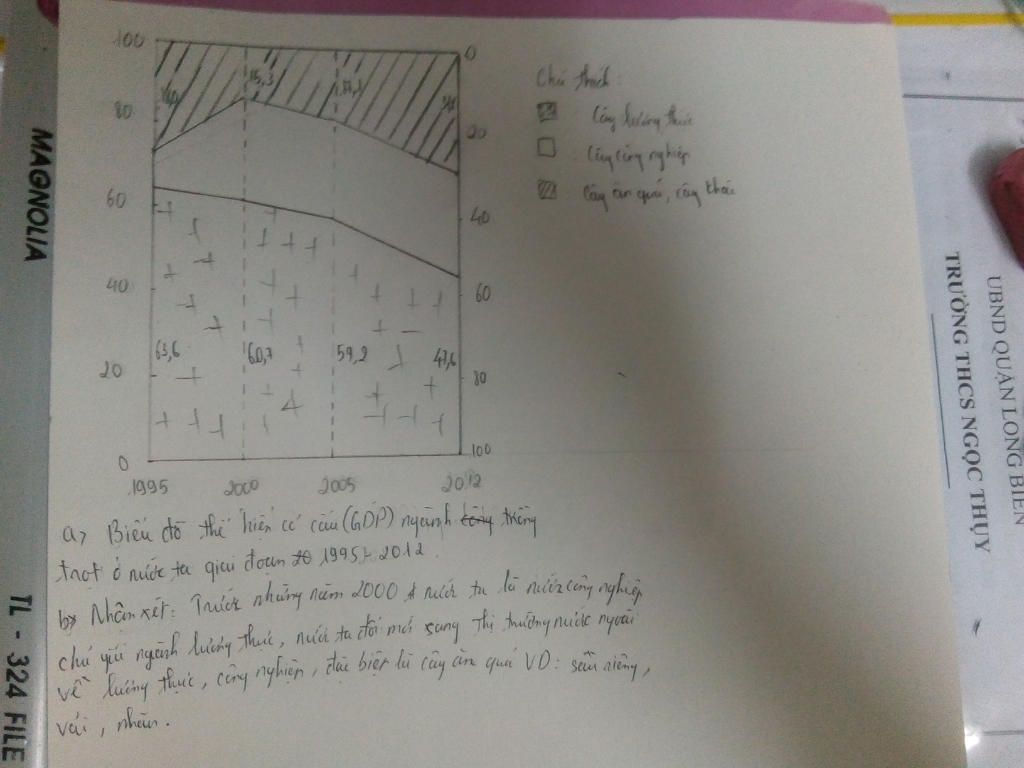 100
80
60
40
20
0
0
20
40
60
80
100
15,3
63,6
60,7
59,2
47,6
1995
2000
2005
2012
Chú thích:
Cây lương thực
Cây công nghiệp
Cây ăn quả, cây khác
a, Biểu đồ thể hiện cơ cấu (GDP) ngành trồng
trọt ở nước ta giai đoạn 1995-2012.
b, Nhận xét: Trước những năm 2000 nước ta là nước công nghiệp
chủ yếu ngành lương thực, nước ta đổi mới sang thị trường nước ngoài
về lương thực, công nghiệp, đặc biệt là cây ăn quả VD: sầu riêng,
vải, nhãn.
MAGNOLIA
TL - 324 FILE
UBND QUẬN LONG BIÊN
TRƯỜNG THCS NGỌC THỤY